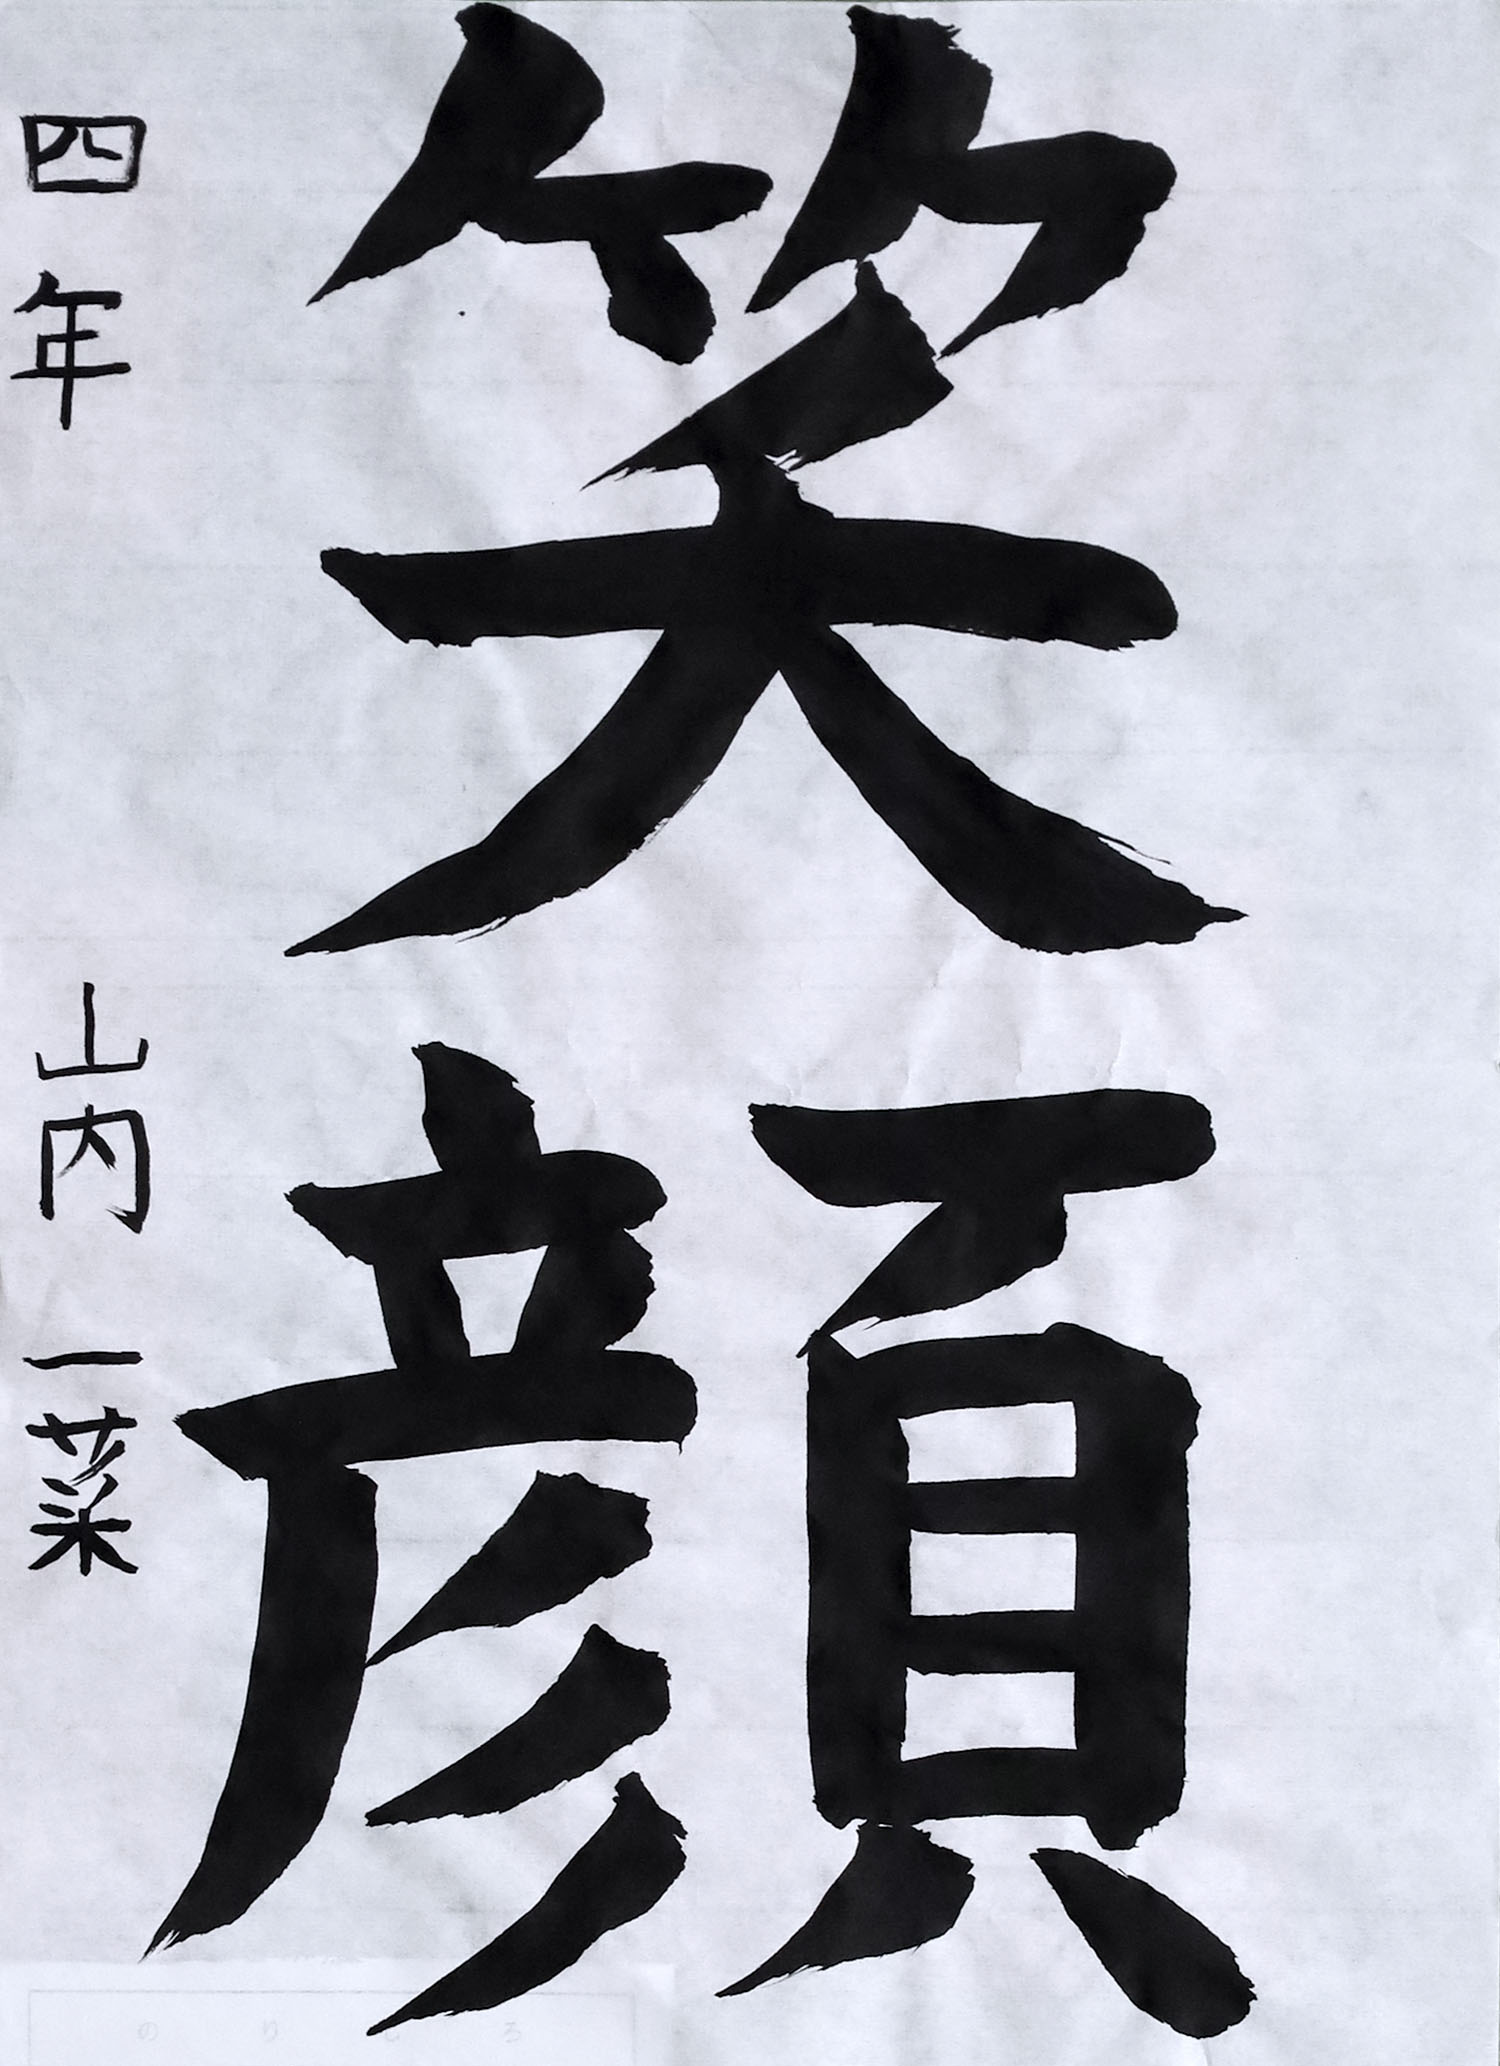 笑顔
四年 山内一菜
のりしろ